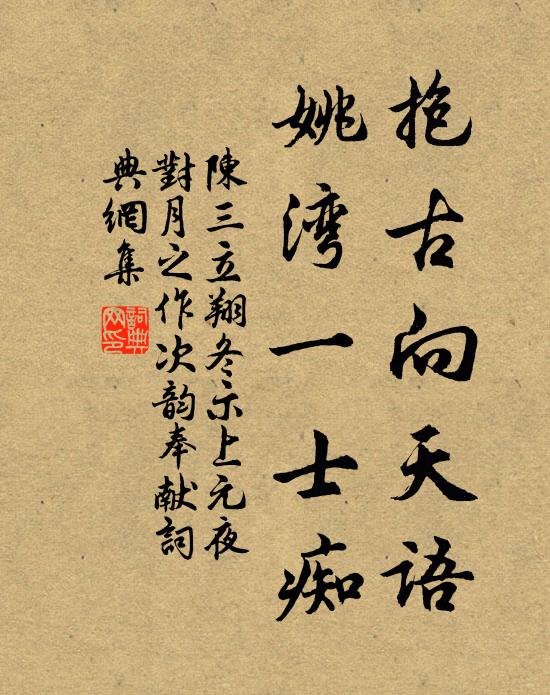 抱古向天语
姚湾一士痴
陳三立翔冬示上元夜
對月之作次韵奉献詞
典網集
詞典网印